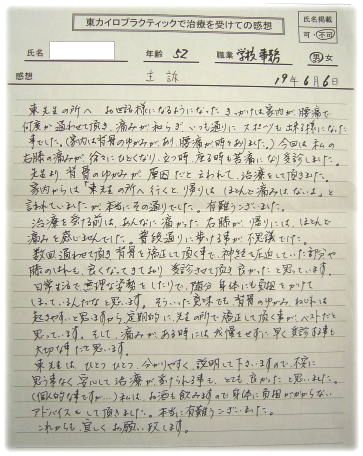 東カイロプラクティックで治療を受けての感想
氏名掲載
可・不可
氏名
年齢 52
職業 学校事務
男 女
感想
主訴
19年6月6日
東先生の所へ お世話様になるようになった きっかけは家内が、腰痛で
何度か通わせて頂き、痛みが和らぎ いつも通りに スポーツも出来る様になった
事でした。(家内は背骨のゆがみがあり、腰痛が時々ありました。) 今回は私の
右膝の痛みが、徐々にひどくなり、立つ時、座る時も苦痛になり受診しました。
先生より 背骨のゆがみが 原因だと言われて、治療をして頂きました。
家内からは「東先生の所へ行くと、帰りは ほとんど痛みはないよ。」と
言われていましたが、本当にその通りでした。有難うございました。
治療を受ける前は、あんなに痛かった右膝が、帰りには、ほとんど
痛みを感じませんでした。普段通りに歩ける事が不思議でした。
数回通わせて頂き背骨を矯正して頂く事で、神経を圧迫していた部分や
膝のしびれも、良くなってきており 受診させて頂き良かったと思っています。
日常生活で無理な姿勢をしたりで、随分身体にも負担をかけて
しまっているんだなと思います。そういった意味でも、背骨のゆがみ、ねじれは
起きやすいと思いますから、定期的に先生の所で矯正して頂く事が、ベストだと
思っています。そして、痛みがある時には我慢をせずに早く受診する事も
大切な事だと思います。
東先生は、ひとつ ひとつ、分かりやすく、説明して下さいますので、不安に
思う事なく 安心して治療が受けられる事も、とても良かったと思いました。
(個人的な事ですが…) 私は、お酒も飲みますので身体に負担がかからない
アドバイスもして頂きました。本当に有難うございました。
これからも、宜しくお願い致します。